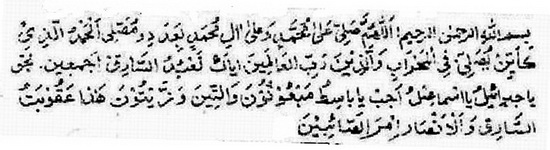 بسم الله الرحمن الرحيم اللهم صلى على محمد وعلى ال محمد بعد دو مقتلى الحمد الذى
كاين يصلى فى المحراب والذين رب العالمين اياك نعبد السارق اجمعين بحق
يا جبرائيل يا اسماعيل اجب يا باسط مبعوثون والتين وزيتون هذا عقوبت
السارق والانصار من الصائبين